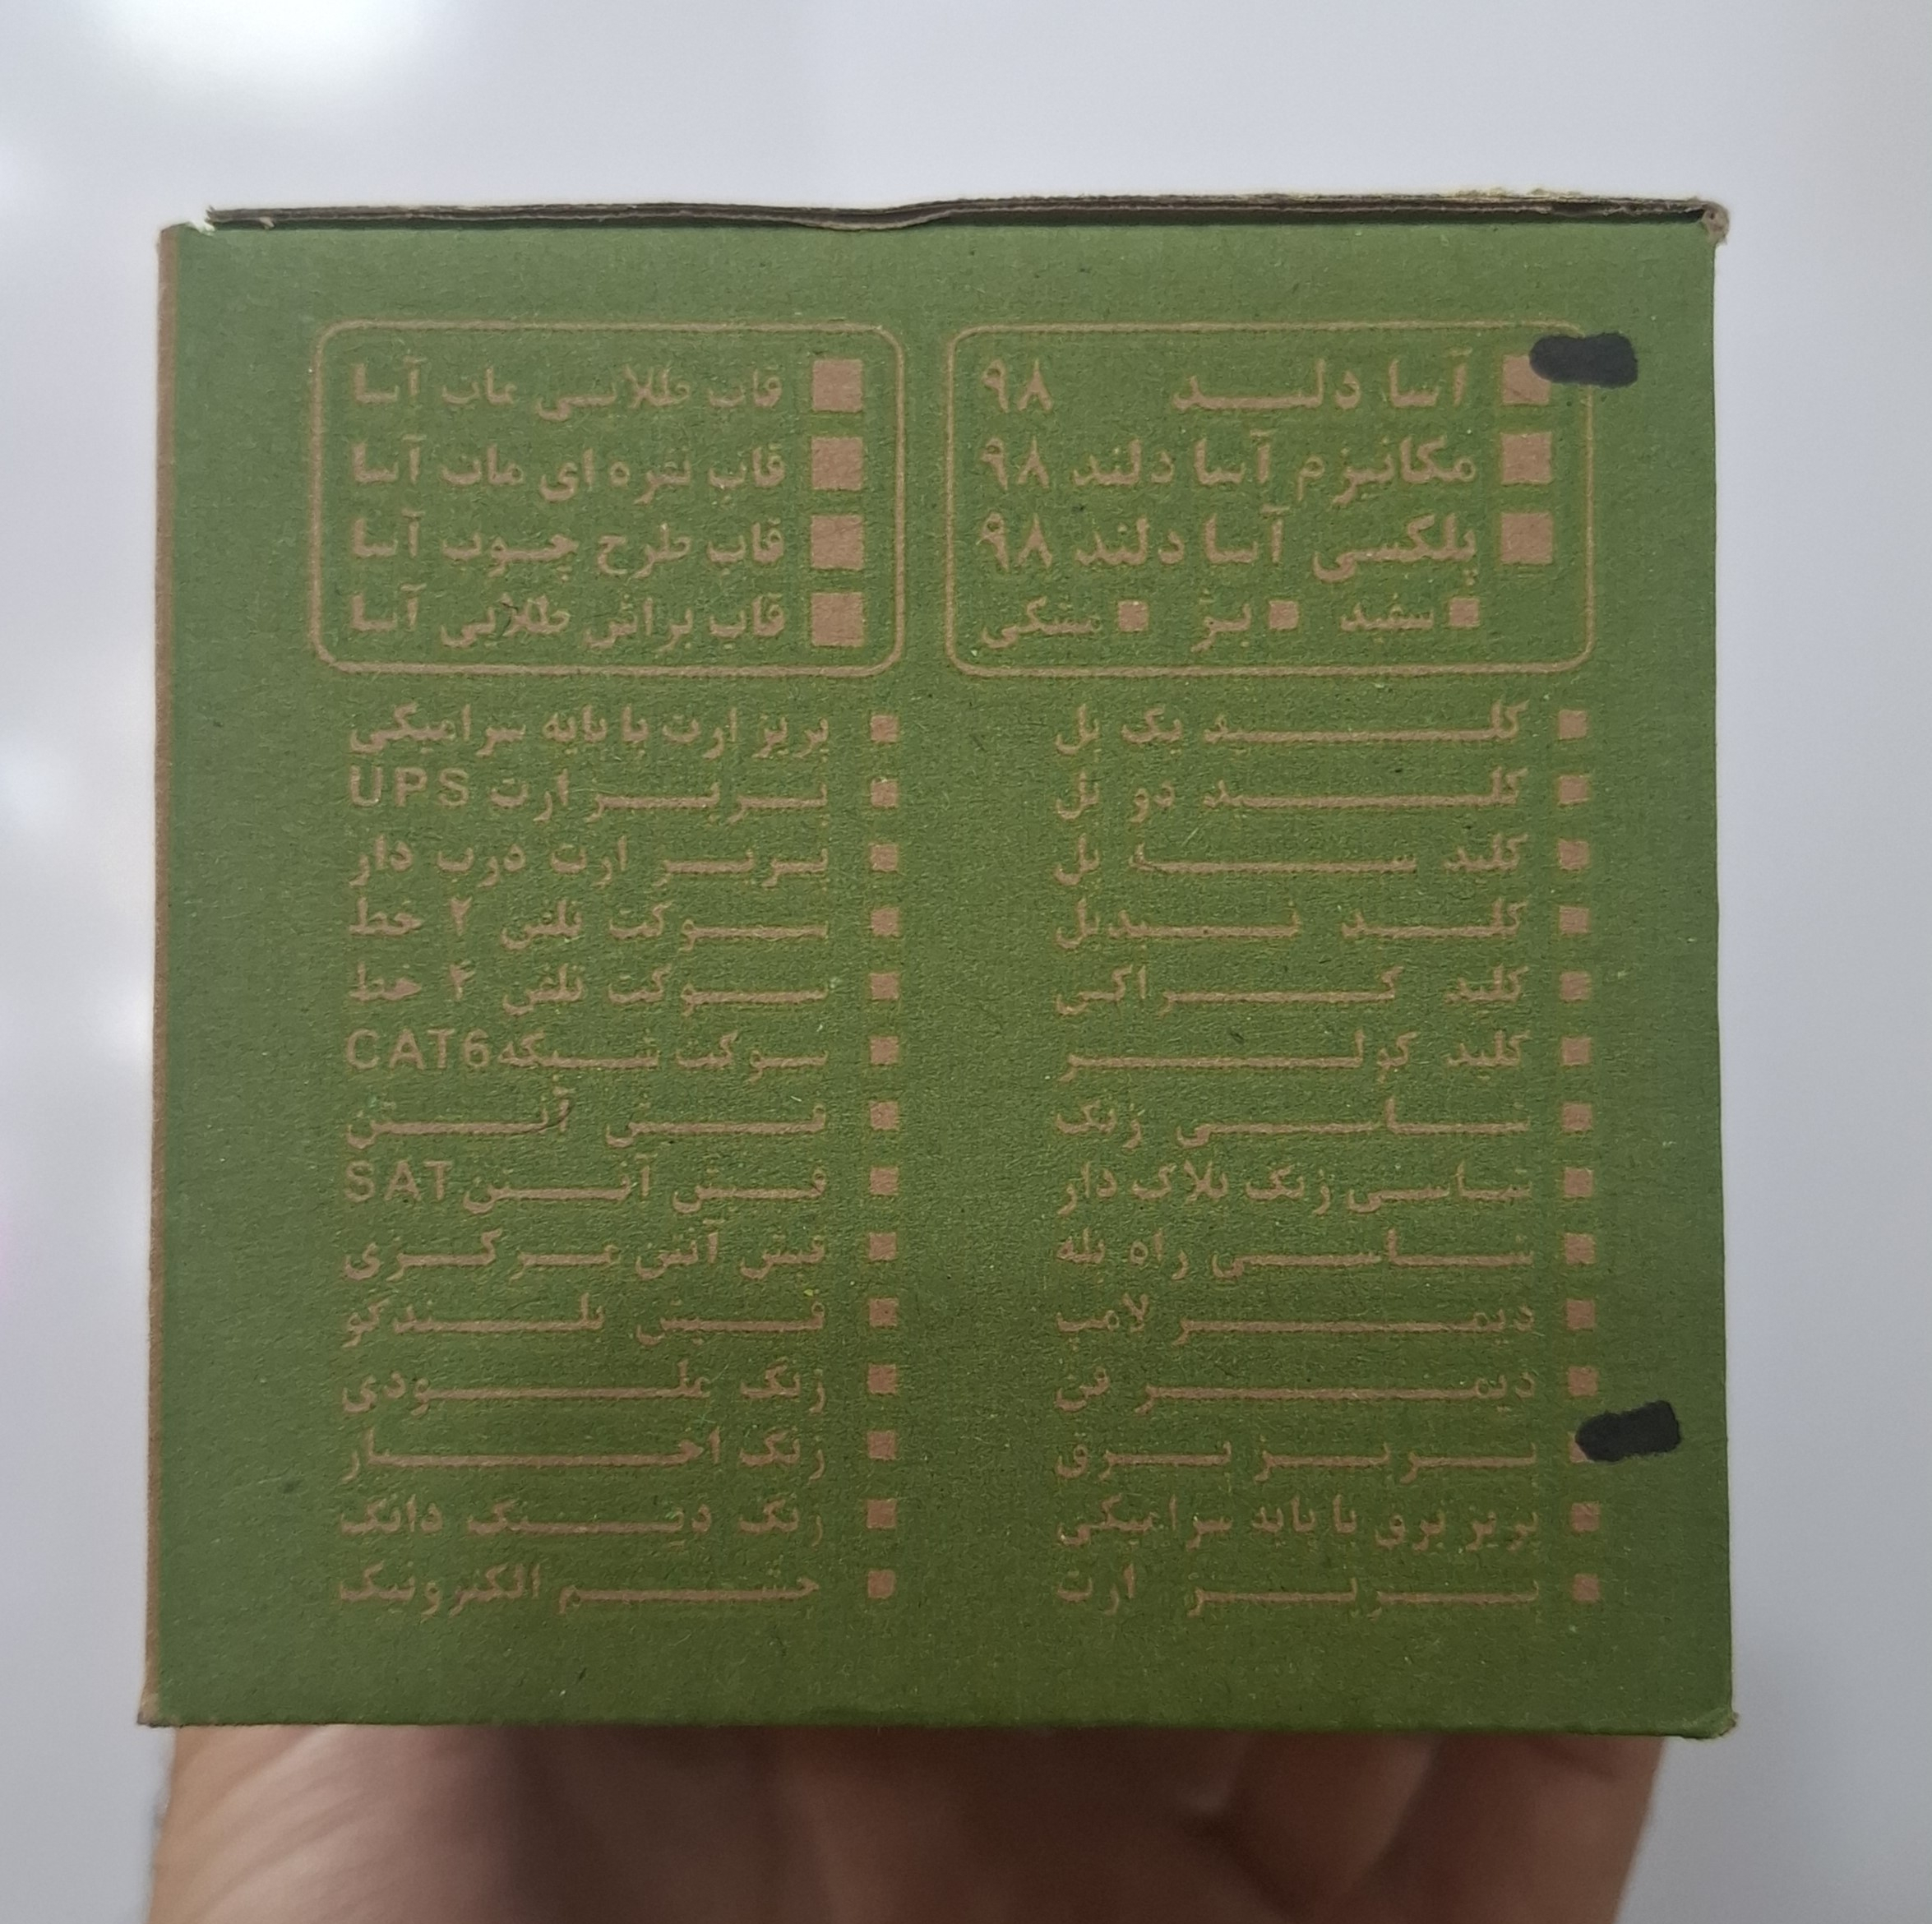 آسا دلند ۹۸
مکانیزم آسا دلند ۹۸
پلکسی آسا دلند ۹۸
سفید بژ مشکی
قاب طلایی مات آسا
قاب نقره ای مات آسا
قاب طرح چوب آسا
قاب براش طلایی آسا
کلید یک پل
کلید دو پل
کلید سه پل
کلید تبدیل
کلید کراکی
کلید کولر
شاسی زنگ
شاسی زنگ پلاک دار
شاسی راه پله
دیمر لامپ
دیمر فن
پریز برق
پریز برق با پایه سرامیکی
پریز ارت
پریز ارت با پایه سرامیکی
پریز ارت UPS
پریز ارت درب دار
سوکت تلفن ۲ خط
سوکت تلفن ۴ خط
سوکت شبکه CAT6
فیش آنتن
فیش آنتن SAT
فیش آنتن مرکزی
فیش بلندگو
زنگ ملودی
زنگ اخبار
زنگ دینگ دانگ
چشم الکترونیک